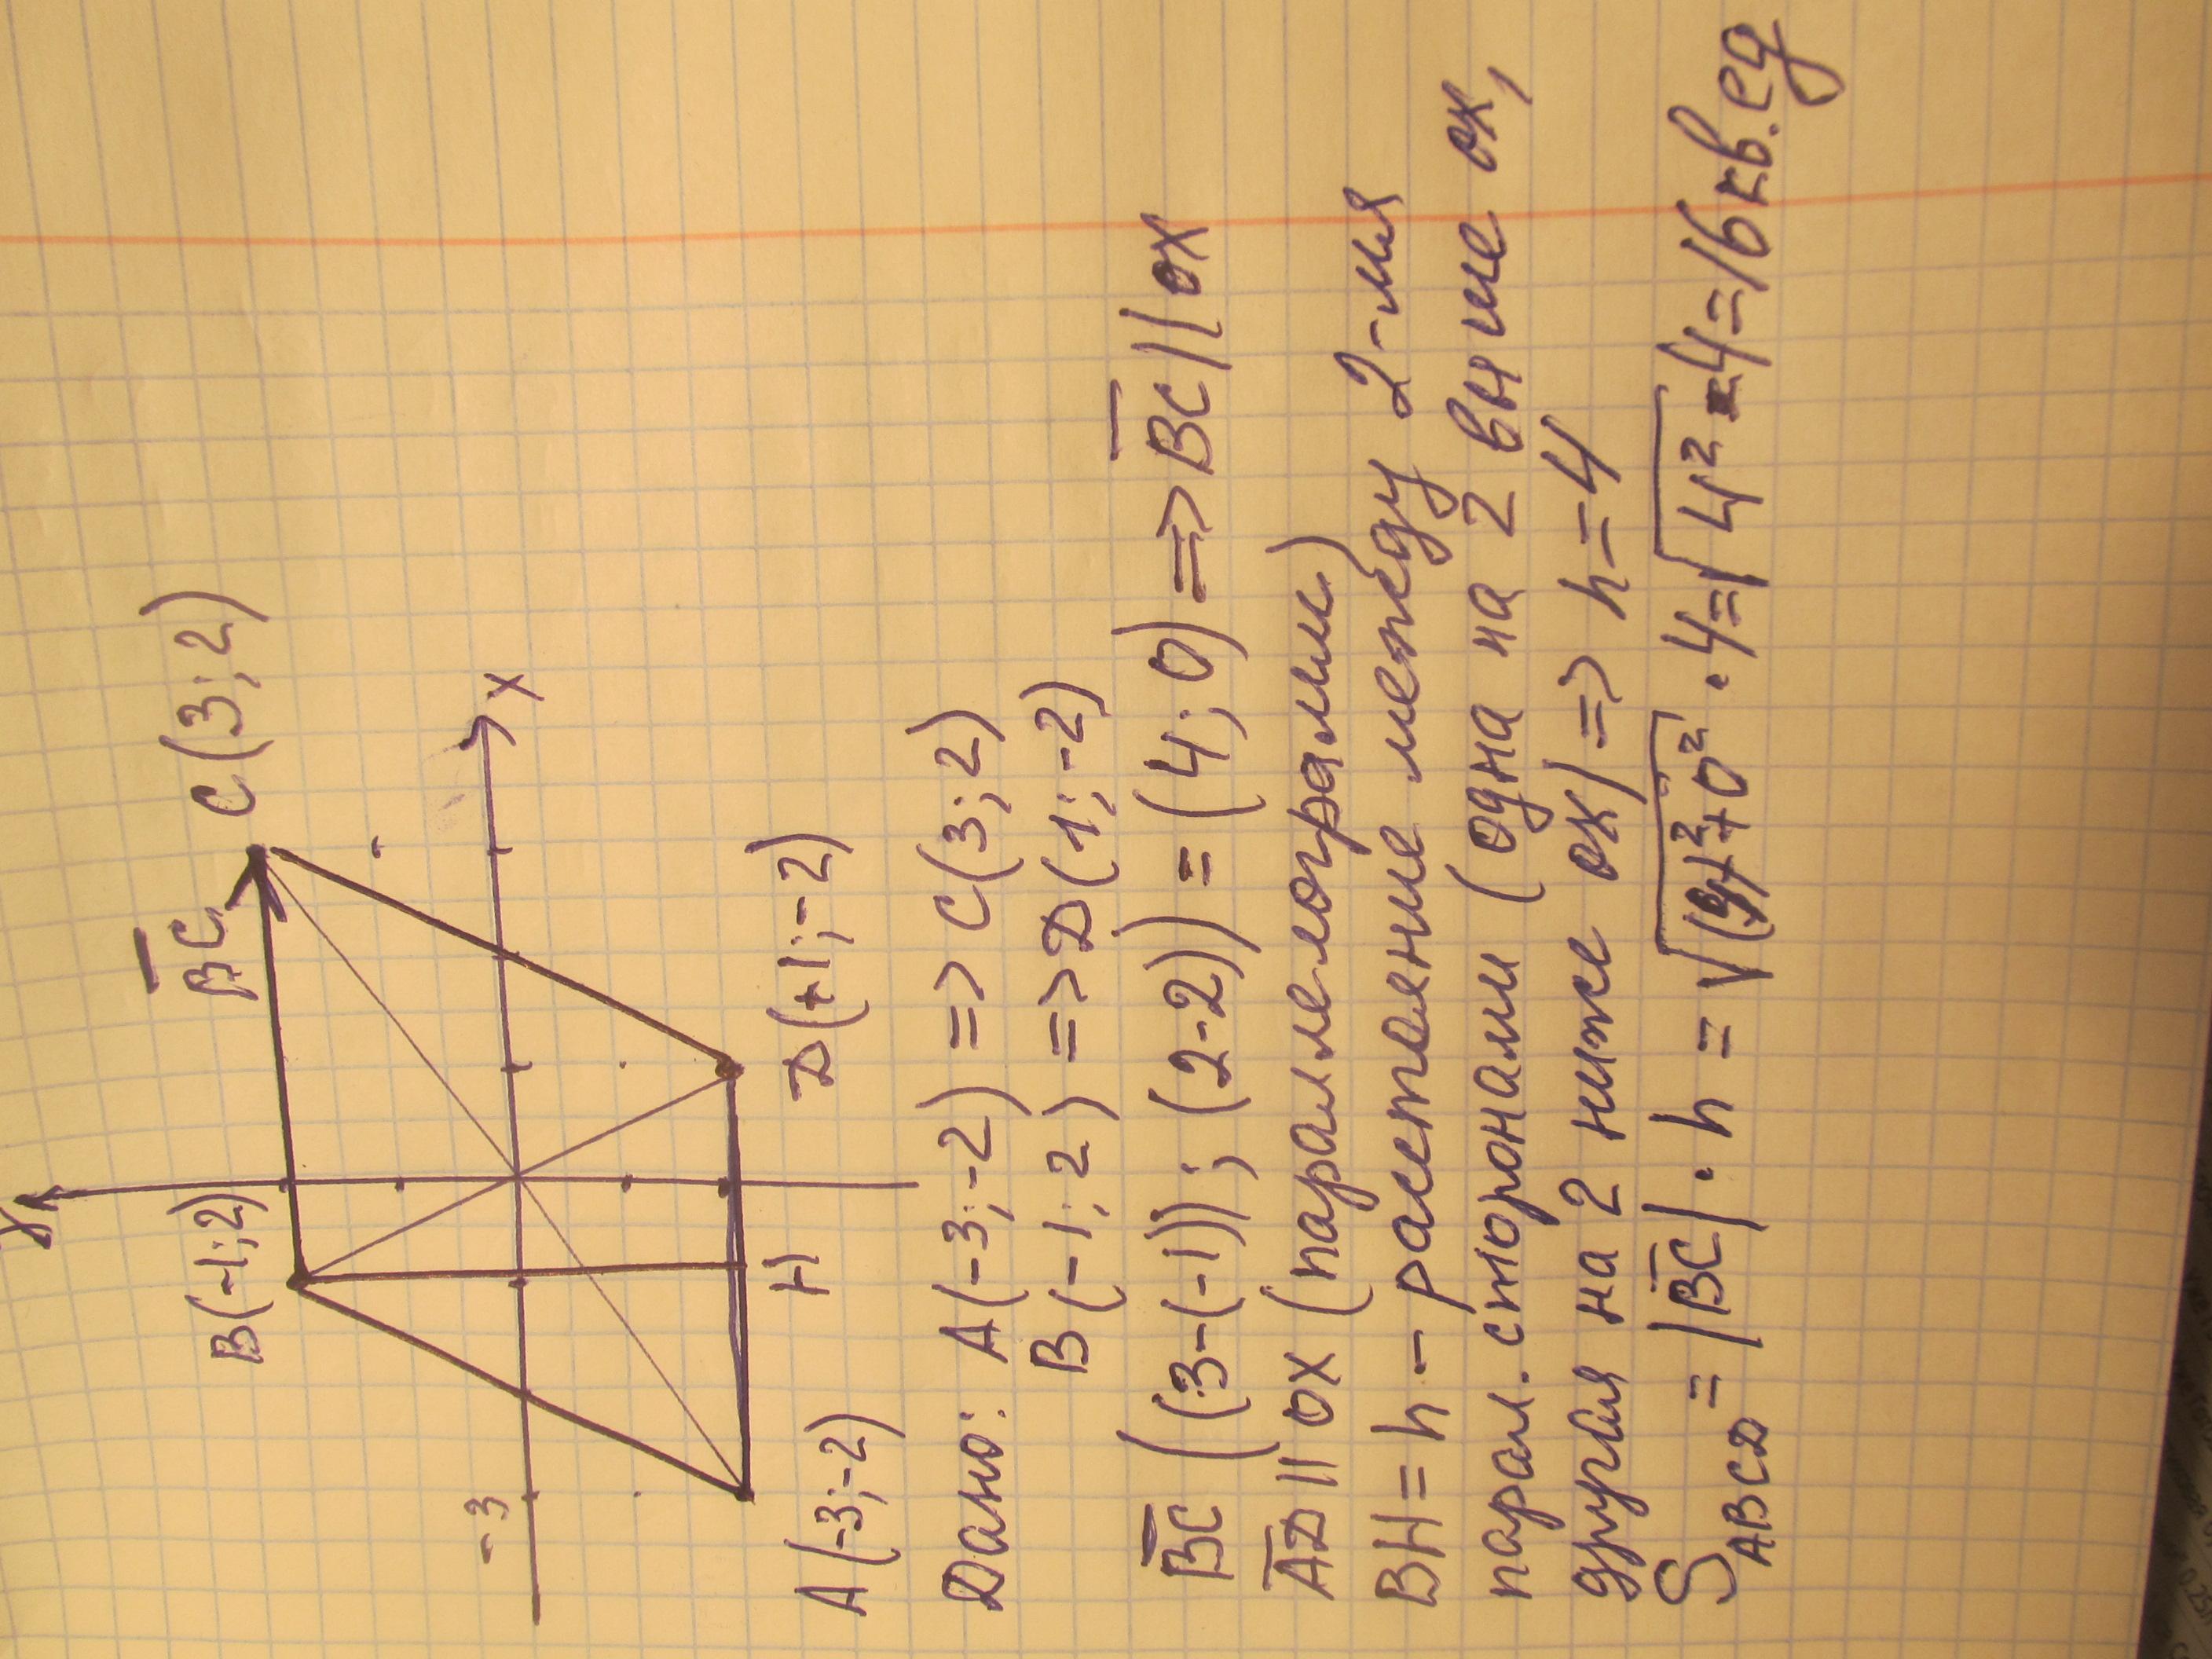 У
B(-1;2)
B̅C̅
C(3;2)
-3
X
A(-3;-2)
H
D(+1;-2)
Дано: A(-3;-2) => C(3;2)
B(-1;2) => D(1;-2)
B̅C̅ ((3-(-1)); (2-2)) = (4;0) => B̅C̅ || ox
A̅D̅ || ox (параллелограмм)
BH = h - расстояние между 2-мя
парал. сторонами (одна на 2 выше ox,
другая на 2 ниже ox) => h = 4
S ABCD = |B̅C̅| · h = √(4)²+0² · 4 = √4² · 4 = 16 кв.ед